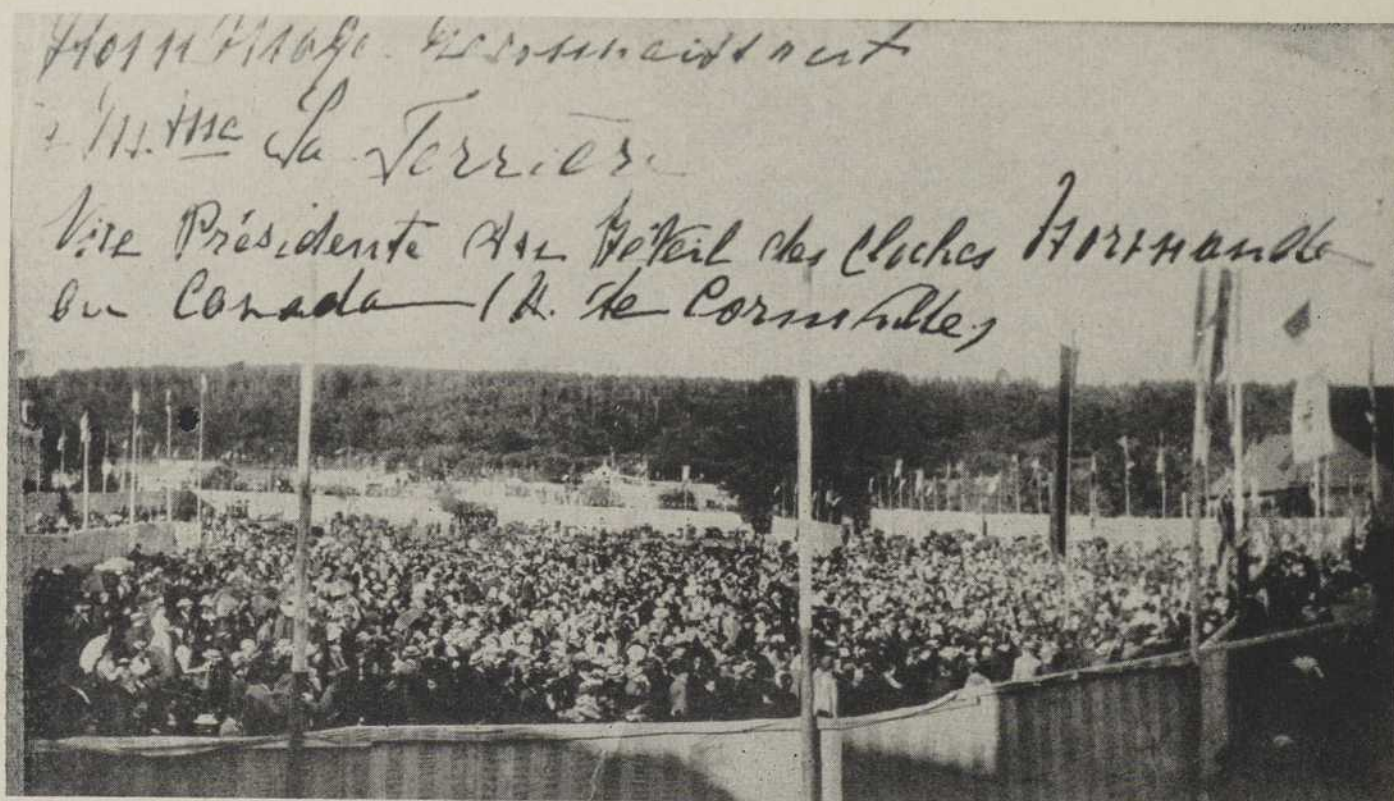 Hommage reconnaissant
à M.me La Ferrière
Vice Présidente du Réveil des cloches Normandes
au Canada (H. de Cormeilles)